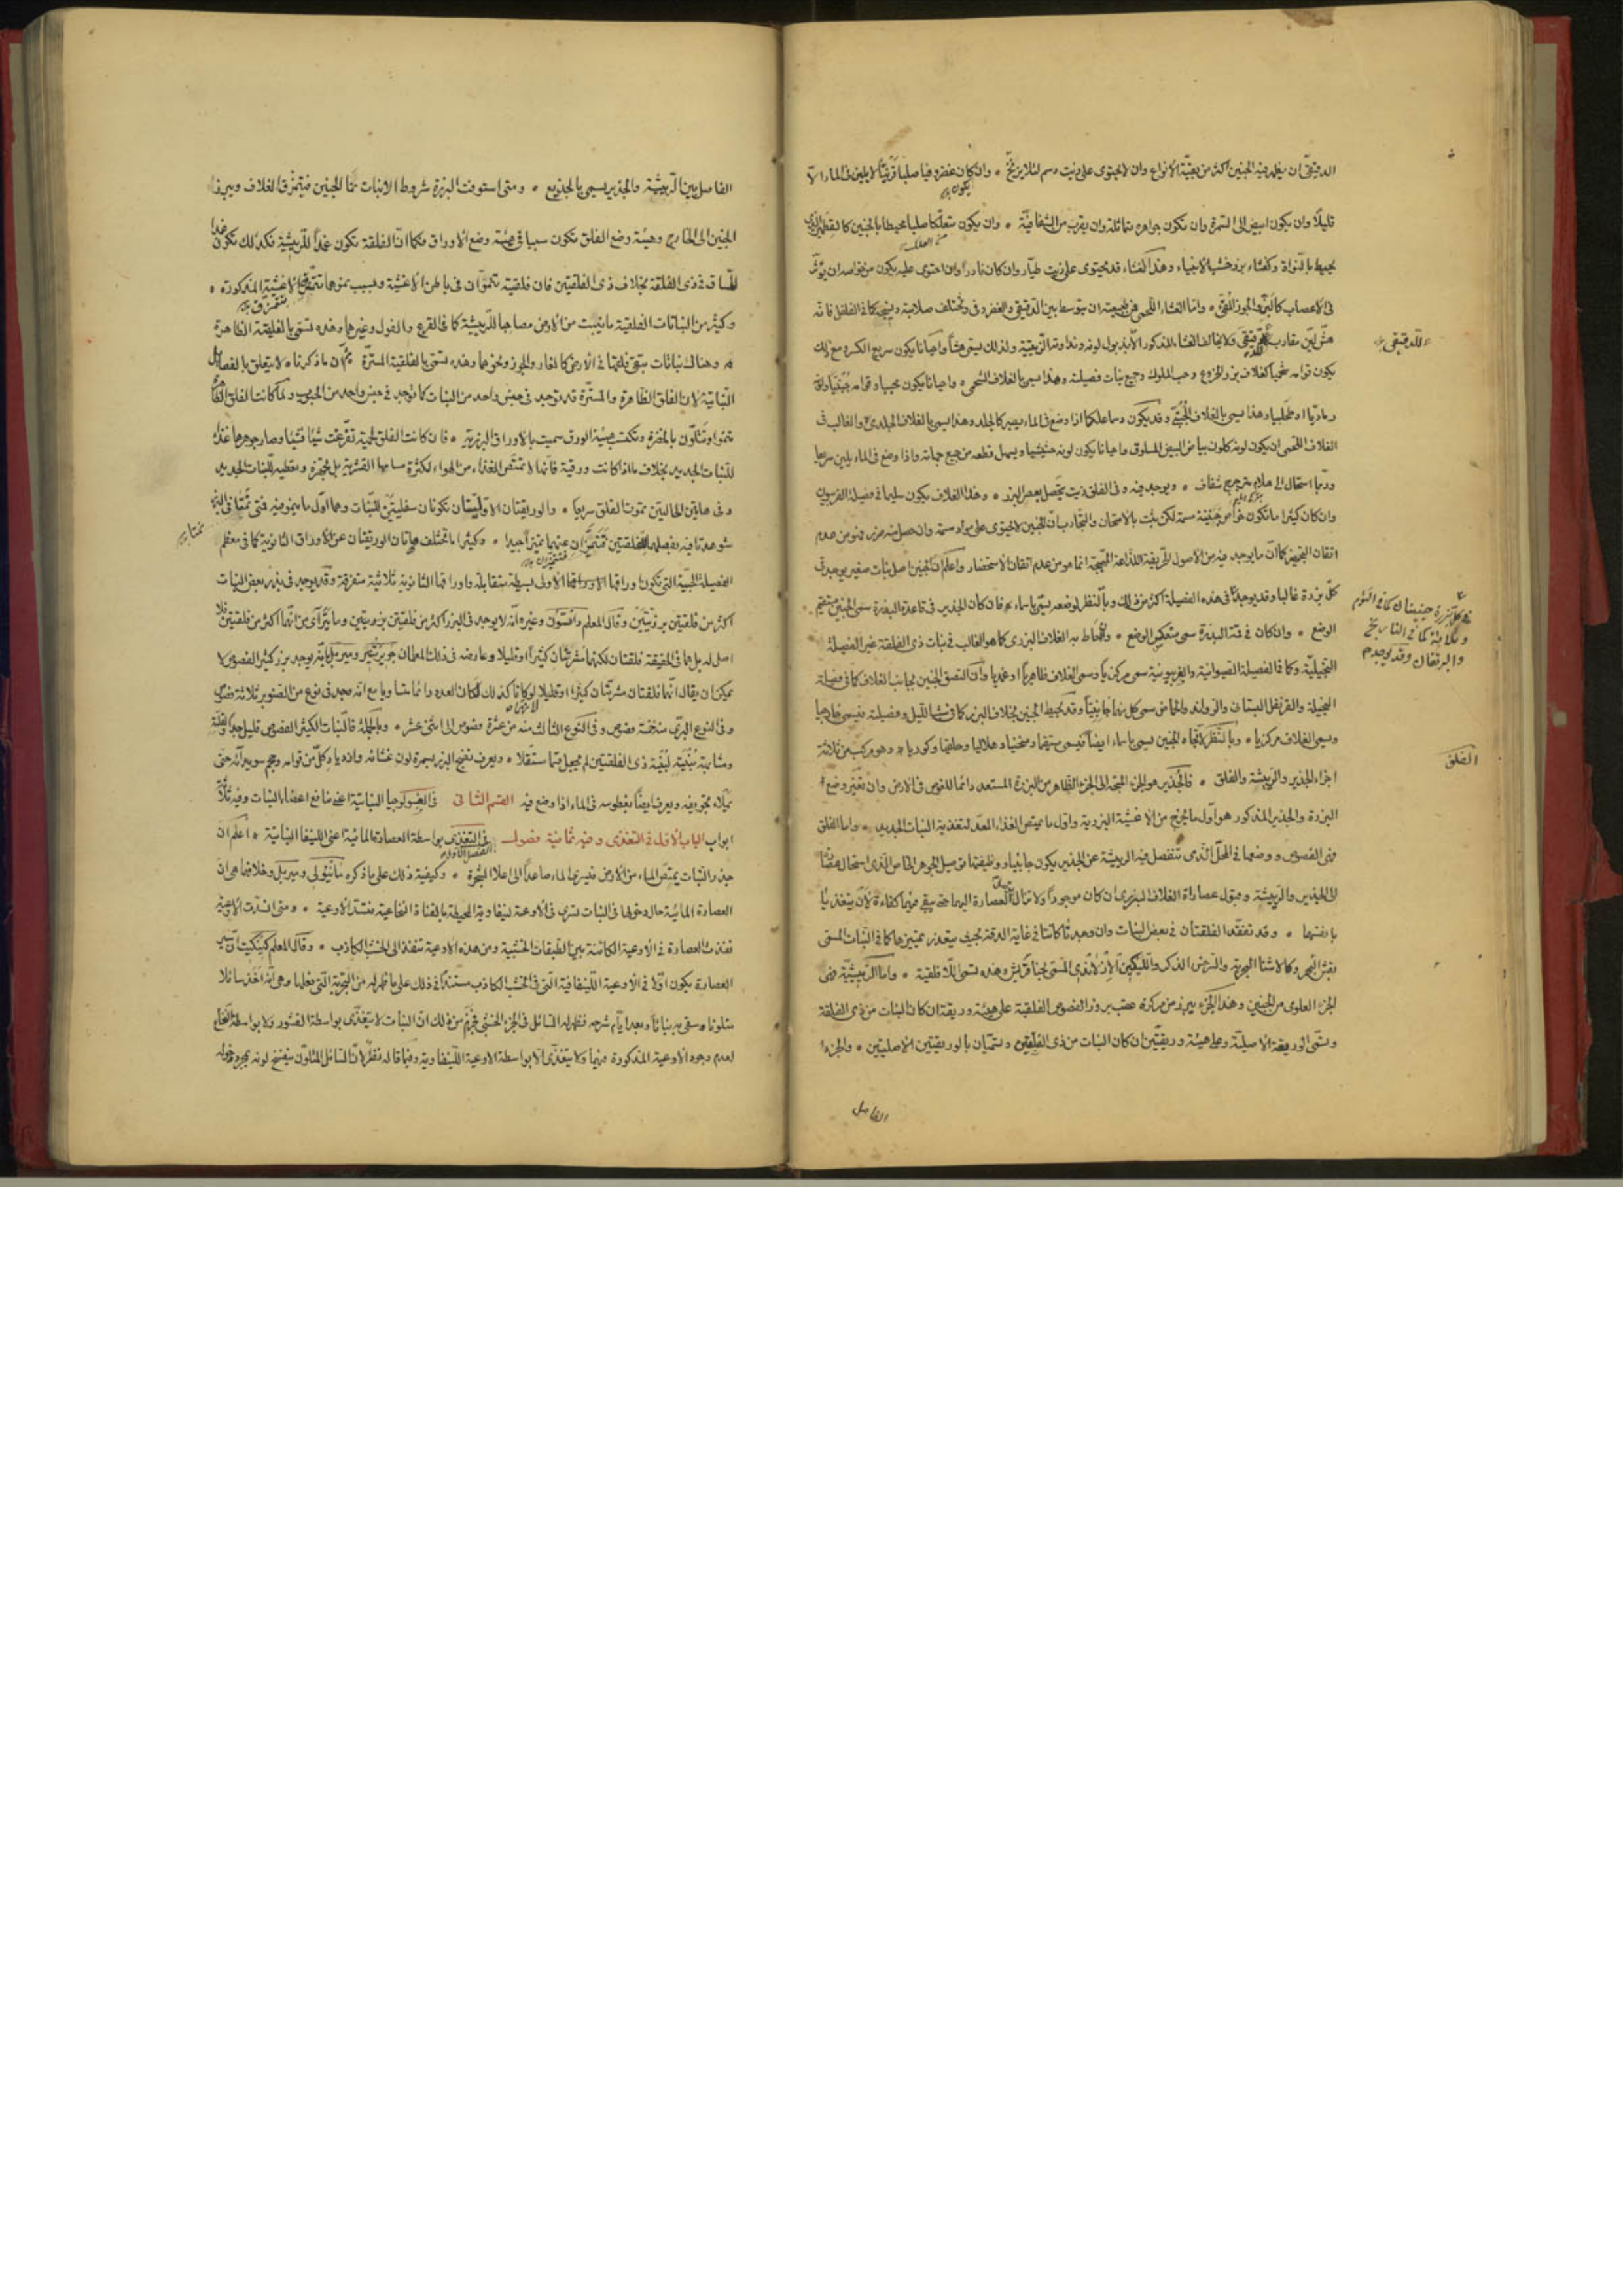 الدقيقى ان يغلد فيه الجنين اكثر من بقية الانواع وان لا يحتوى على زيت دسم لئلا يزنخ وان كان غضروفيا صلبا قرنيا لا يلين فى الماء الا
قليلا وان يكون ابيض الى السمرة وان تكون جواهره متماثلة وان يقرب من الشفافية وان يكون متعلكا صلبا محيطا بالجنين كالقطير الذى
يحيط بالنواة وكغشاء بزر خشب الانبياء وهذا الغشاء قد يحتوى على زيت طيار وان كان نادرا وان احتوى عليه يكون من خواصه ان يؤثر
فى الاعصاب كالبن والجوز المقيئ واما الغشاء اللحمى فمن طبيعته ان يتوسط بين الدقيقى والغضروفى وتختلف صلابته كما فى الفلفل فانه
هش لين مقارب للدقيقى ولا يخالف الغشاء المذكور الا بذبول لونه ونداوته الزيتية ولذلك يبقى هشا واحيانا يكون سريع الكسر ومع ذلك
يكون قوامه شحميا كغلاف بزر الخروع وحب الملوك وجميع نبات فصيلته وهذا يسمى بالغلاف الشحمى واحيانا يكون محببا وقوامه جبنيا ولونه
رماديا او طحلبيا وهذا يسمى بالغلاف الجبنى وقد يكون دسما علكا اذا وضع فى الماء يصير كالجلد وهذا يسمى بالغلاف الجلدى والغالب فى
الغلاف اللحمى ان يكون لونه كلون بياض البيض المسلوق واحيانا يكون لونه حشيشيا ويسهل قطعه من جميع جهاته واذا وضع فى الماء يلين سريعا
وربما استحال الى هلام مترجرج شفاف ويوجد فيه وفى الفلق زيت يتحصل بعصر البزر وهذا الغلاف يكون سليما فى فصيلة الفربيون
وان كان كثيرا ما تكون خواص جنينه سمية لكن ثبت بالامتحان والتجارب ان الجنين لا يحتوى على مواد سمية وان حصل منه ضرر فهو من عدم
اتقان التجهيز كما ان ما يوجد فيه من الاصول الحريفة اللذاعة المهيجة انما هو من عدم اتقان الاستحضار واعلم ان الجنين اصل نبات صغير يوجد فى
كل بزرة غالبا وقد يوجد فى هذه الفصيلة اكثر من ذلك وبالنظر لوضعه يسمى باسماء فان كان الجذير فى قاعدة البذرة سمى الجنين مستقيم
الوضع وان كان فى قمة البذرة سمى منعكس الوضع والمحاط به الغلاف البزرى كما هو الغالب فى نبات ذى الفلقة غير الفصيلة
النجيلية وكما فى الفصيلة الصيوانية والفربيونية سمى مركزيا وسمى الغلاف ظاهريا او غمديا وان التصق الجنين بجانب الغلاف كما فى فصيلة
النجيلة والقرنفل البستانى والراوند والحماض سمى كل منهما جانبيا وقد يحيط الجنين بغلاف البزر كما فى شب الليل وفصيلته فيسمى خارجيا
ويسمى الغلاف مركزيا وبالنظر لاتجاه الجنين يسمى باسماء ايضا فيسمى مستقيما ومنحنيا وهلاليا وحلقيا وكوريا وهو مركب من ثلاثة
اجزاء الجذير والريشة والفلق فالجذير هو الجزء المتجه الى الجزء الظاهر من البزرة المستعد دائما للغوص فى الارض وان تغير وضع
البزرة والجذير المذكور هو اول ما يخرج من الاغشية البزرية واول ما يمتص الغذاء المعد لتغذية النبات الجديد واما الفلق
فهى الفصوص ووضعها فى المحل الذى تنفصل فيه الريشة عن الجذير يكون جانبيا ووظيفتها توصيل الجوهر الخاص الذى استحال فصا
الى الجذير والريشة وقبول عصارة الغلاف البزرى ان كان موجودا ولا تزال العصارة اليها حتى يبقى فيها كفاءة لان يتغذيا
بانفسهما وقد تفقد الفلقتان فى بعض النبات وان وجدتا كانتا فى غاية الدقة بحيث يتعذر تمييزهما كما فى النبات المسمى
بقش البحر وكالاشنا البحرية والسرخس الذكر وهذه تسمى باللا فلقية واما الريشة فهى
الجزء العلوى من الجنين وهذا الجزء يبرز من مركزه عقب بروز الفصوص الفلقية على هيئة وريقة ان كان النبات من ذى الفلقة
وتسمى الوريقة الاصلية وعلى هيئة وريقتين ان كان النبات من ذى الفلقتين وتسميان بالوريقتين الاصليتين والجزء
الفاصل
للدقيقى
فى كل بزرة جنينان كما فى الثوم
وثلاثة كما فى النارنج
والبرتقان وقد يوجد
الفلق
الفاصل بين الريشة والجذير يسمى بالجذيع ومتى استوفت البزرة شروط الانبات نما الجنين فيتمزق الغلاف ويبرز
الجنين الى الخارج وهيئة وضع الفلق تكون سببا فى هيئة وضع الاوراق فكما ان الفلقة تكون غمدا للريشة فكذلك تكون غمدا
للساق فى ذى الفلقة بخلاف ذى الفلقتين فان فلقتيه تنموان فى باطن الاغشية وبسبب نموهما تتمزق الاغشية المذكورة
وكثير من النباتات الفلقية ما ينبت من الارض مصاحبا للريشة كما فى القرع والفول وغيرهما وهذه تسمى بالفلقية الظاهرة
وهناك نباتات تبقى فلقتها فى الارض كالغار والجوز ونحوهما وهذه تسمى بالفلقية المستترة ثم ان ما ذكرنا لا يتعلق بالفصائل
النباتية لان الفلق الظاهرة والمستترة قد توجد فى جنس واحد من النبات كما توجد فى جنس واحد من الحبوب ولما كانت الفلق
تنمو وتتلون بالخضرة وتكتسب هيئة الورق سميت بالاوراق البزرية فان كانت الفلق لحمية تفرغت شيئا فشيئا وصار جوهرها غذاء
للنبات الجديد بخلاف ما اذا كانت ورقية فانها لا تمتص الغذاء من الهواء لكثرة مسامها القشرية بل تجهزه وتعطيه للنبات الجديد
وفى هاتين الحالتين تموت الفلق سريعا والوريقتان الاوليتان تكونان سفليتين للنبات وهما اول ما ينمو فيه فمتى نمتا فى البزر
شوهدتا فيه بفصلهما الفلقتين فتتميزان عنهما تميزا جيدا وكثيرا ما تختلف هاتان الوريقتان عن الاوراق الثانوية كما فى معظم
الفصيلة الحبية التى تكون اوراقها الاولى بسيطة متقابلة واوراقها الثانوية ثلاثية متفرقة وقد يوجد فى بزر بعض النبات
اكثر من فلقتين بزريتين وقال المعلم وغيره انه لا يوجد فى البزر اكثر من فلقتين بزريتين وما يتراءى من انها اكثر من فلقتين فلا
اصل له بل هما فى الحقيقة فلقتان لكنهما مشرشتان كثيرا او قليلا وعارضه فى ذلك المعلمان بانه يوجد بزر كثير الفصوص لا
يمكن ان يقال انهما فلقتان مشرشتان كثيرا او قليلا اذ لو كانا كذلك لكان العدد دائما متساويا مع انه وجد فى نوع من الصنوبر ثلاثة فصوص
وفى النوع البرى منه خمسة فصوص وفى النوع الثالث منه من عشرة فصوص الى اثنى عشر وبالجملة فالنبات الكثير الفصوص قليل جدا
ومشابهة بنيته لبنية ذى الفلقتين لم يجعل قسما مستقلا ويعرف نضج البزر بسمرة لون غشائه وازدياد كل من قوامه وحجم سويدائه حتى
يملاء تجويفه ويعرف ايضا بغطوسه فى الماء اذا وضع فيه القسم الثانى فى الفسيولوجيا النباتية اعنى منافع اعضاء النبات وفيه ثلاثة
ابواب الباب الاول فى التغذى وفيه ثمانية فصول الفصل الاول فى التغذى بواسطة العصارة المائية اعنى اللينفا النباتية اعلم ان
جذر النبات يمتص الماء من الارض فيسرى الماء صاعدا الى اعلا الشجرة وكيفية ذلك على ما ذكره وميربل وخلافهما هى ان
العصارة المائية حال دخولها فى النبات تسرى فى الاوعية لينفاوية المحيطة بالقناة النخاعية فتسد الاوعية ومتى انسدت الاوعية
نفذت العصارة فى الاوعية الكائنة بين الطبقات الخشبية ومن هذه الاوعية تنفذ الى الخشب الكاذب وقال المعلم ان سير
العصارة يكون اولا فى الاوعية اللينفاوية التى فى الخشب الكاذب مستندا فى ذلك على ما ظهر له من التجربة التى فعلها وهى انه اخذ سائلا
متلونا وسقى به نباتا وبعد ايام شرحه فظهر له السائل فى الجزء الخشبى فجزم من ذلك ان النبات لا يتغذى بواسطة القشور ولا بواسطة النخاع
لعدم وجود الاوعية المذكورة فيهما ولا يتغذى الا بواسطة الاوعية اللينفاوية وفيما قاله نظر لان السائل المتلون ينفسخ لونه بمجرد دخوله